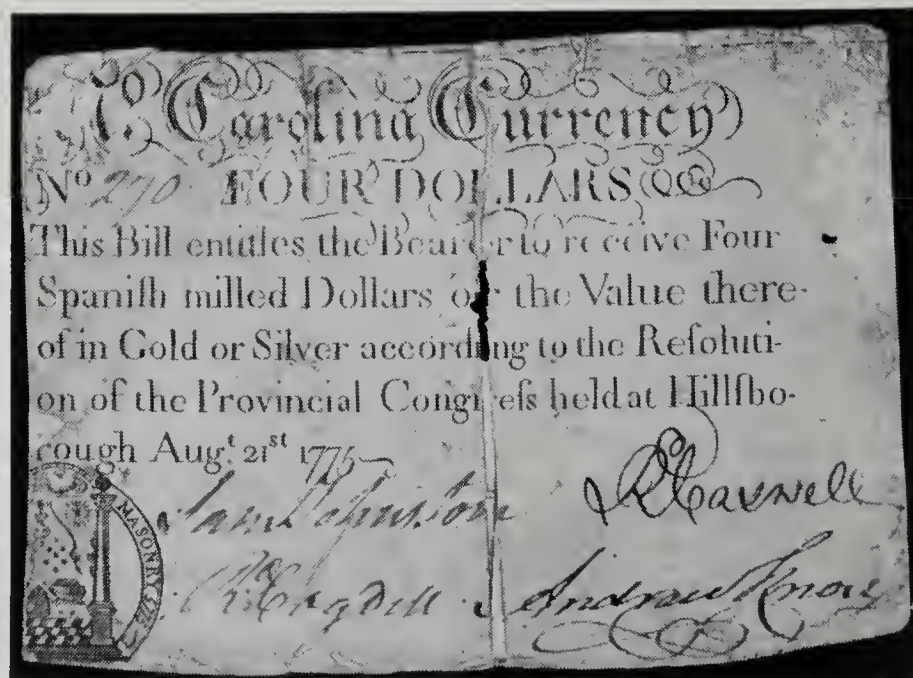 No. Carolina Currency
No 270 FOUR DOLLARS
This Bill entitles the Bearer to receive Four
Spaniſh milled Dollars or the Value there-
of in Gold or Silver according to the Reſoluti-
on of the Provincial Congreſs held at Hillſbo-
rough Augt. 21st 1775
Saml Johnston
RdCaswell
Andrew Knox
MASONRY